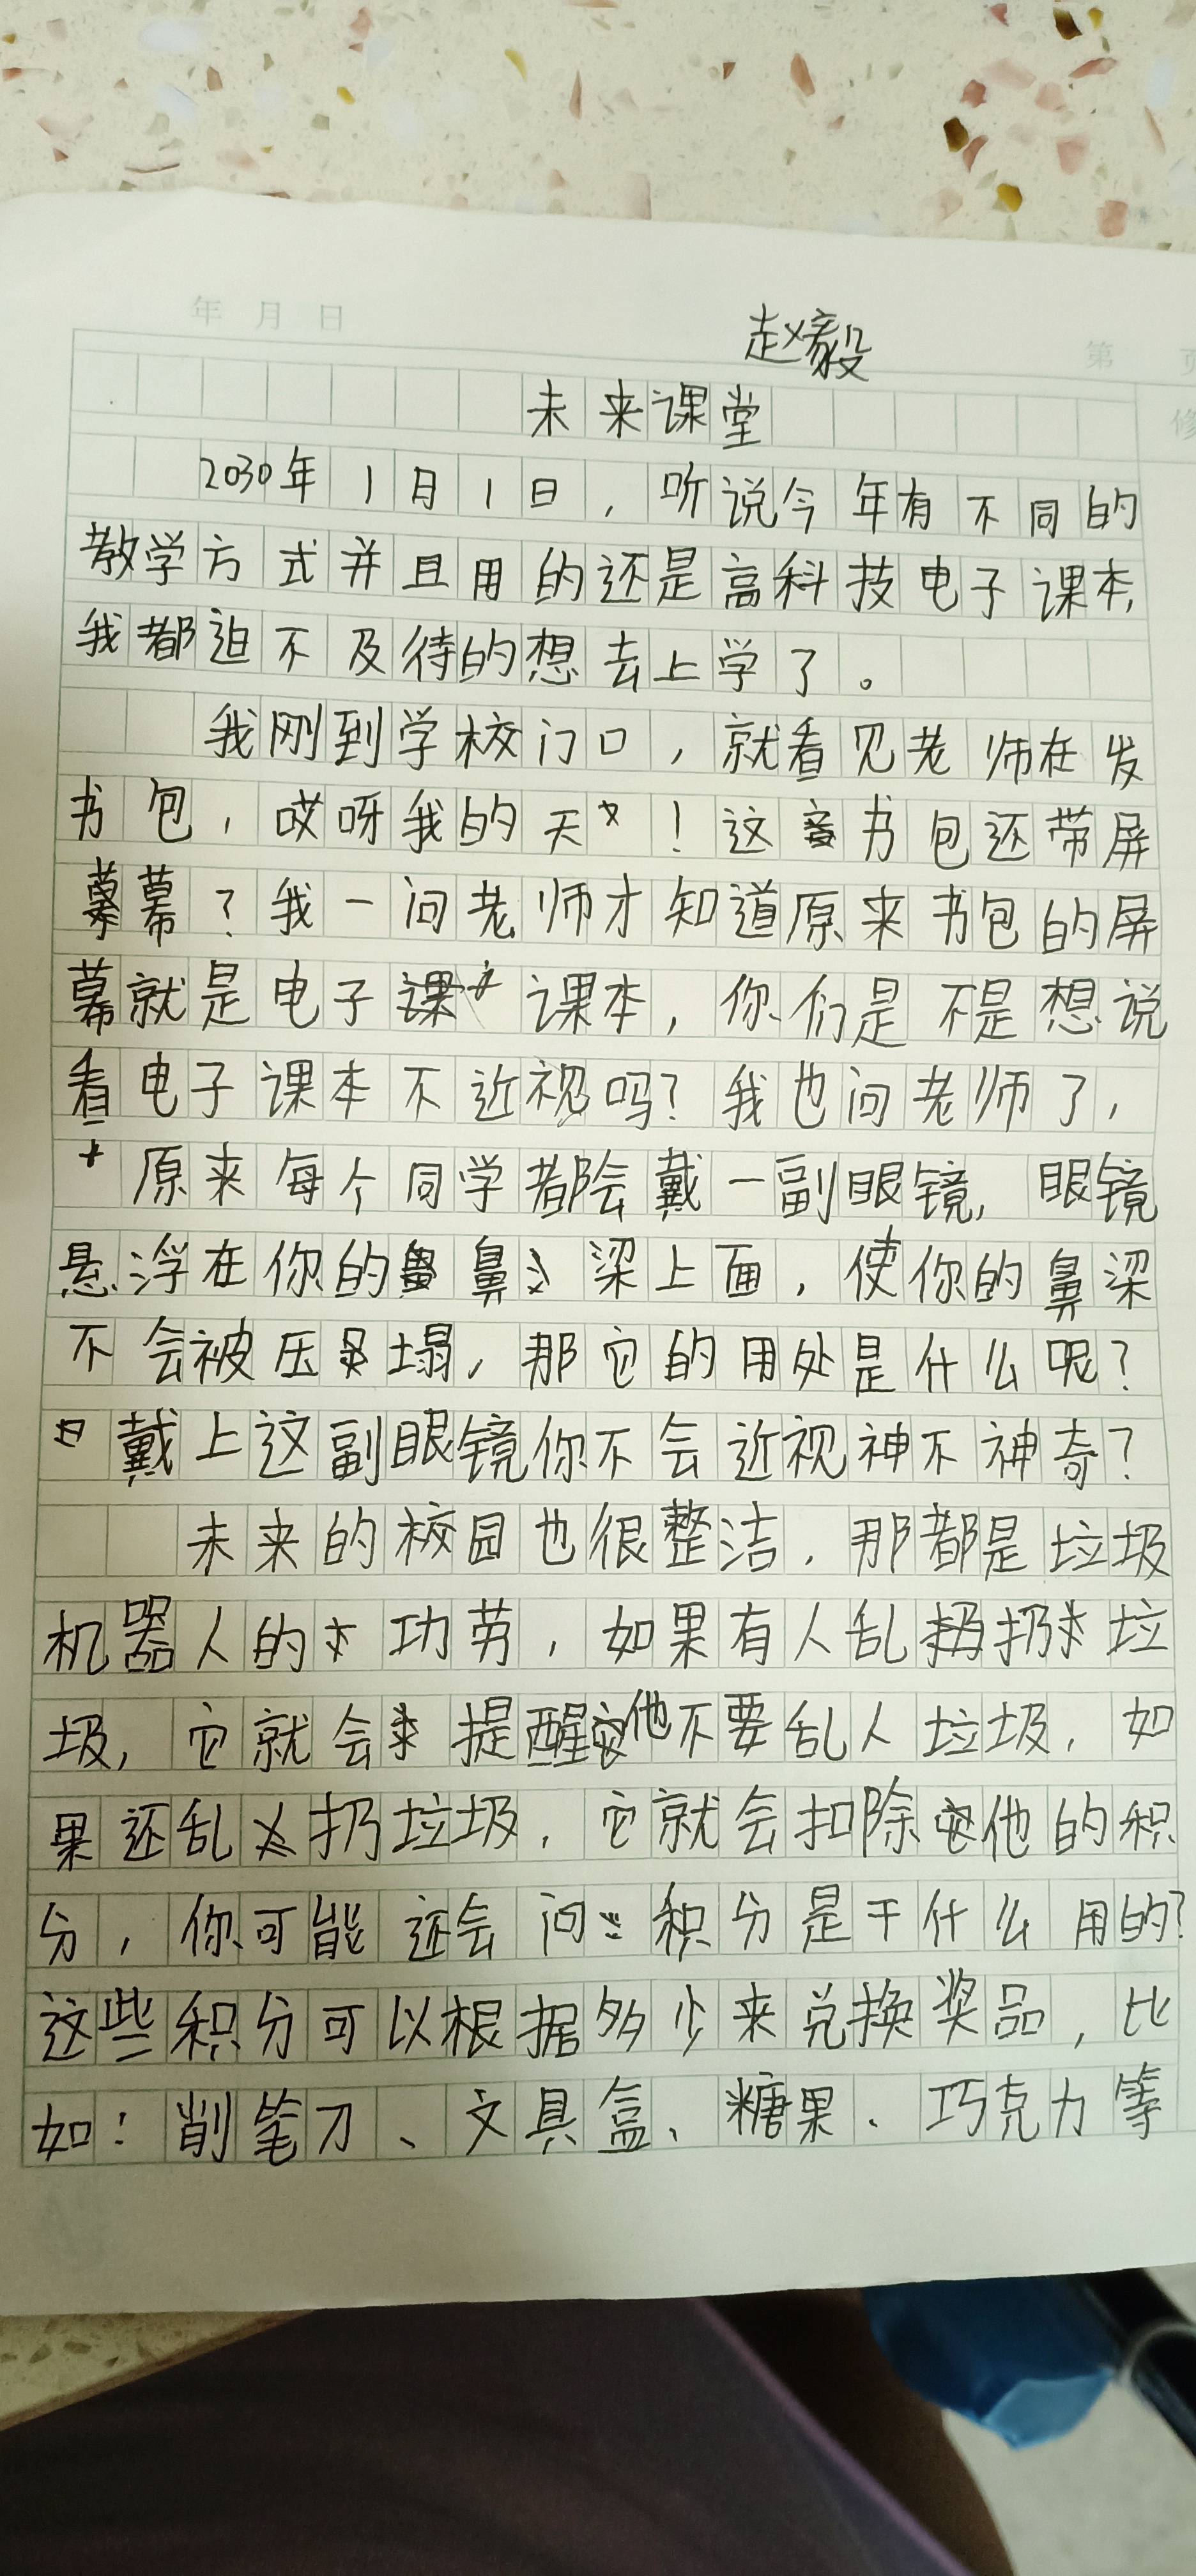 年 月 日
赵毅
第 页
修
未来课堂
2030年1月1日，听说今年有不同的
教学方式并且用的还是高科技电子课本，
我都迫不及待的想去上学了。
我刚到学校门口，就看见老师在发
书包，哎呀我的天！这书包还带屏
幕？我一问老师才知道原来书包的屏
幕就是电子课本，你们是不是想说
看电子课本不近视吗？我也问老师了，
原来每个同学都会戴一副眼镜，眼镜
悬浮在你的鼻梁上面，使你的鼻梁
不会被压塌，那它的用处是什么呢？
戴上这副眼镜你不会近视神不神奇？
未来的校园也很整洁，那都是垃圾
机器人的功劳，如果有人乱扔垃
圾，它就会提醒他不要乱人垃圾，如
果还乱扔垃圾，它就会扣除他的积
分，你可能还会问积分是干什么用的？
这些积分可以根据多少来兑换奖品，比
如：削笔刀、文具盒、糖果、巧克力等